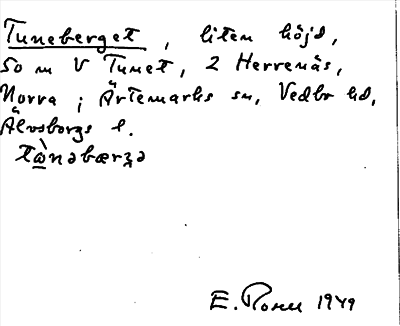 Tuneberget, liten höjd,
50 m V Tunet, 2 Herrenäs,
Norra ; Ärtemarks sn, Vedbo hd,
Älvsborgs l.
E. 1949